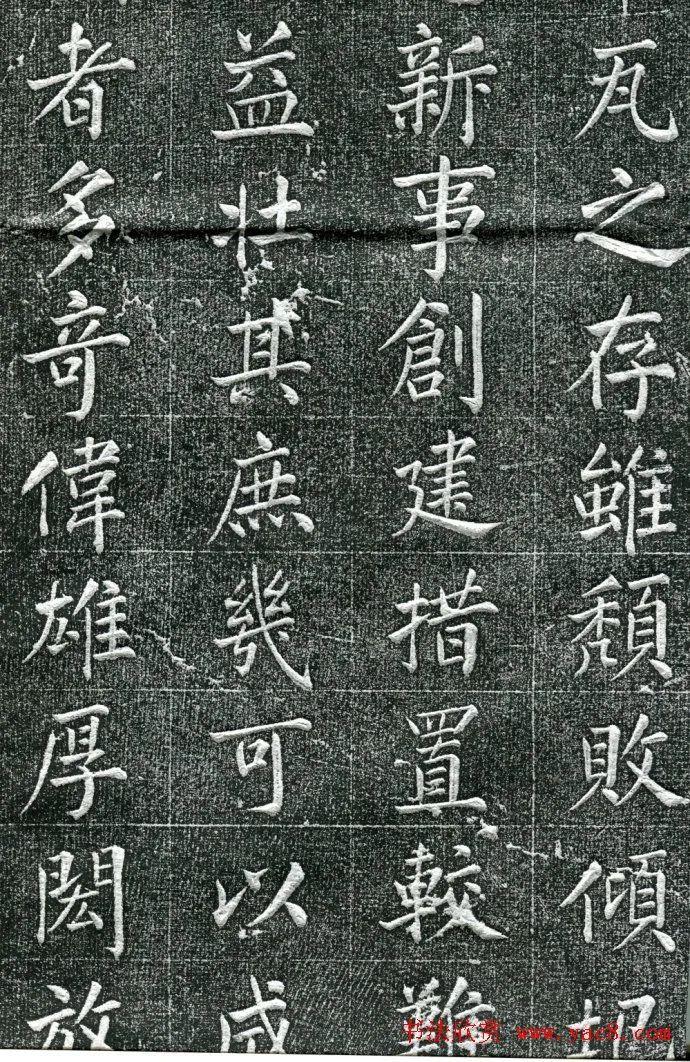 瓦之存雖頽敗傾
新事創建措置較難
益壯其庶幾可以
者多竒偉雄厚閎放
书法欣赏 www.yac8.com